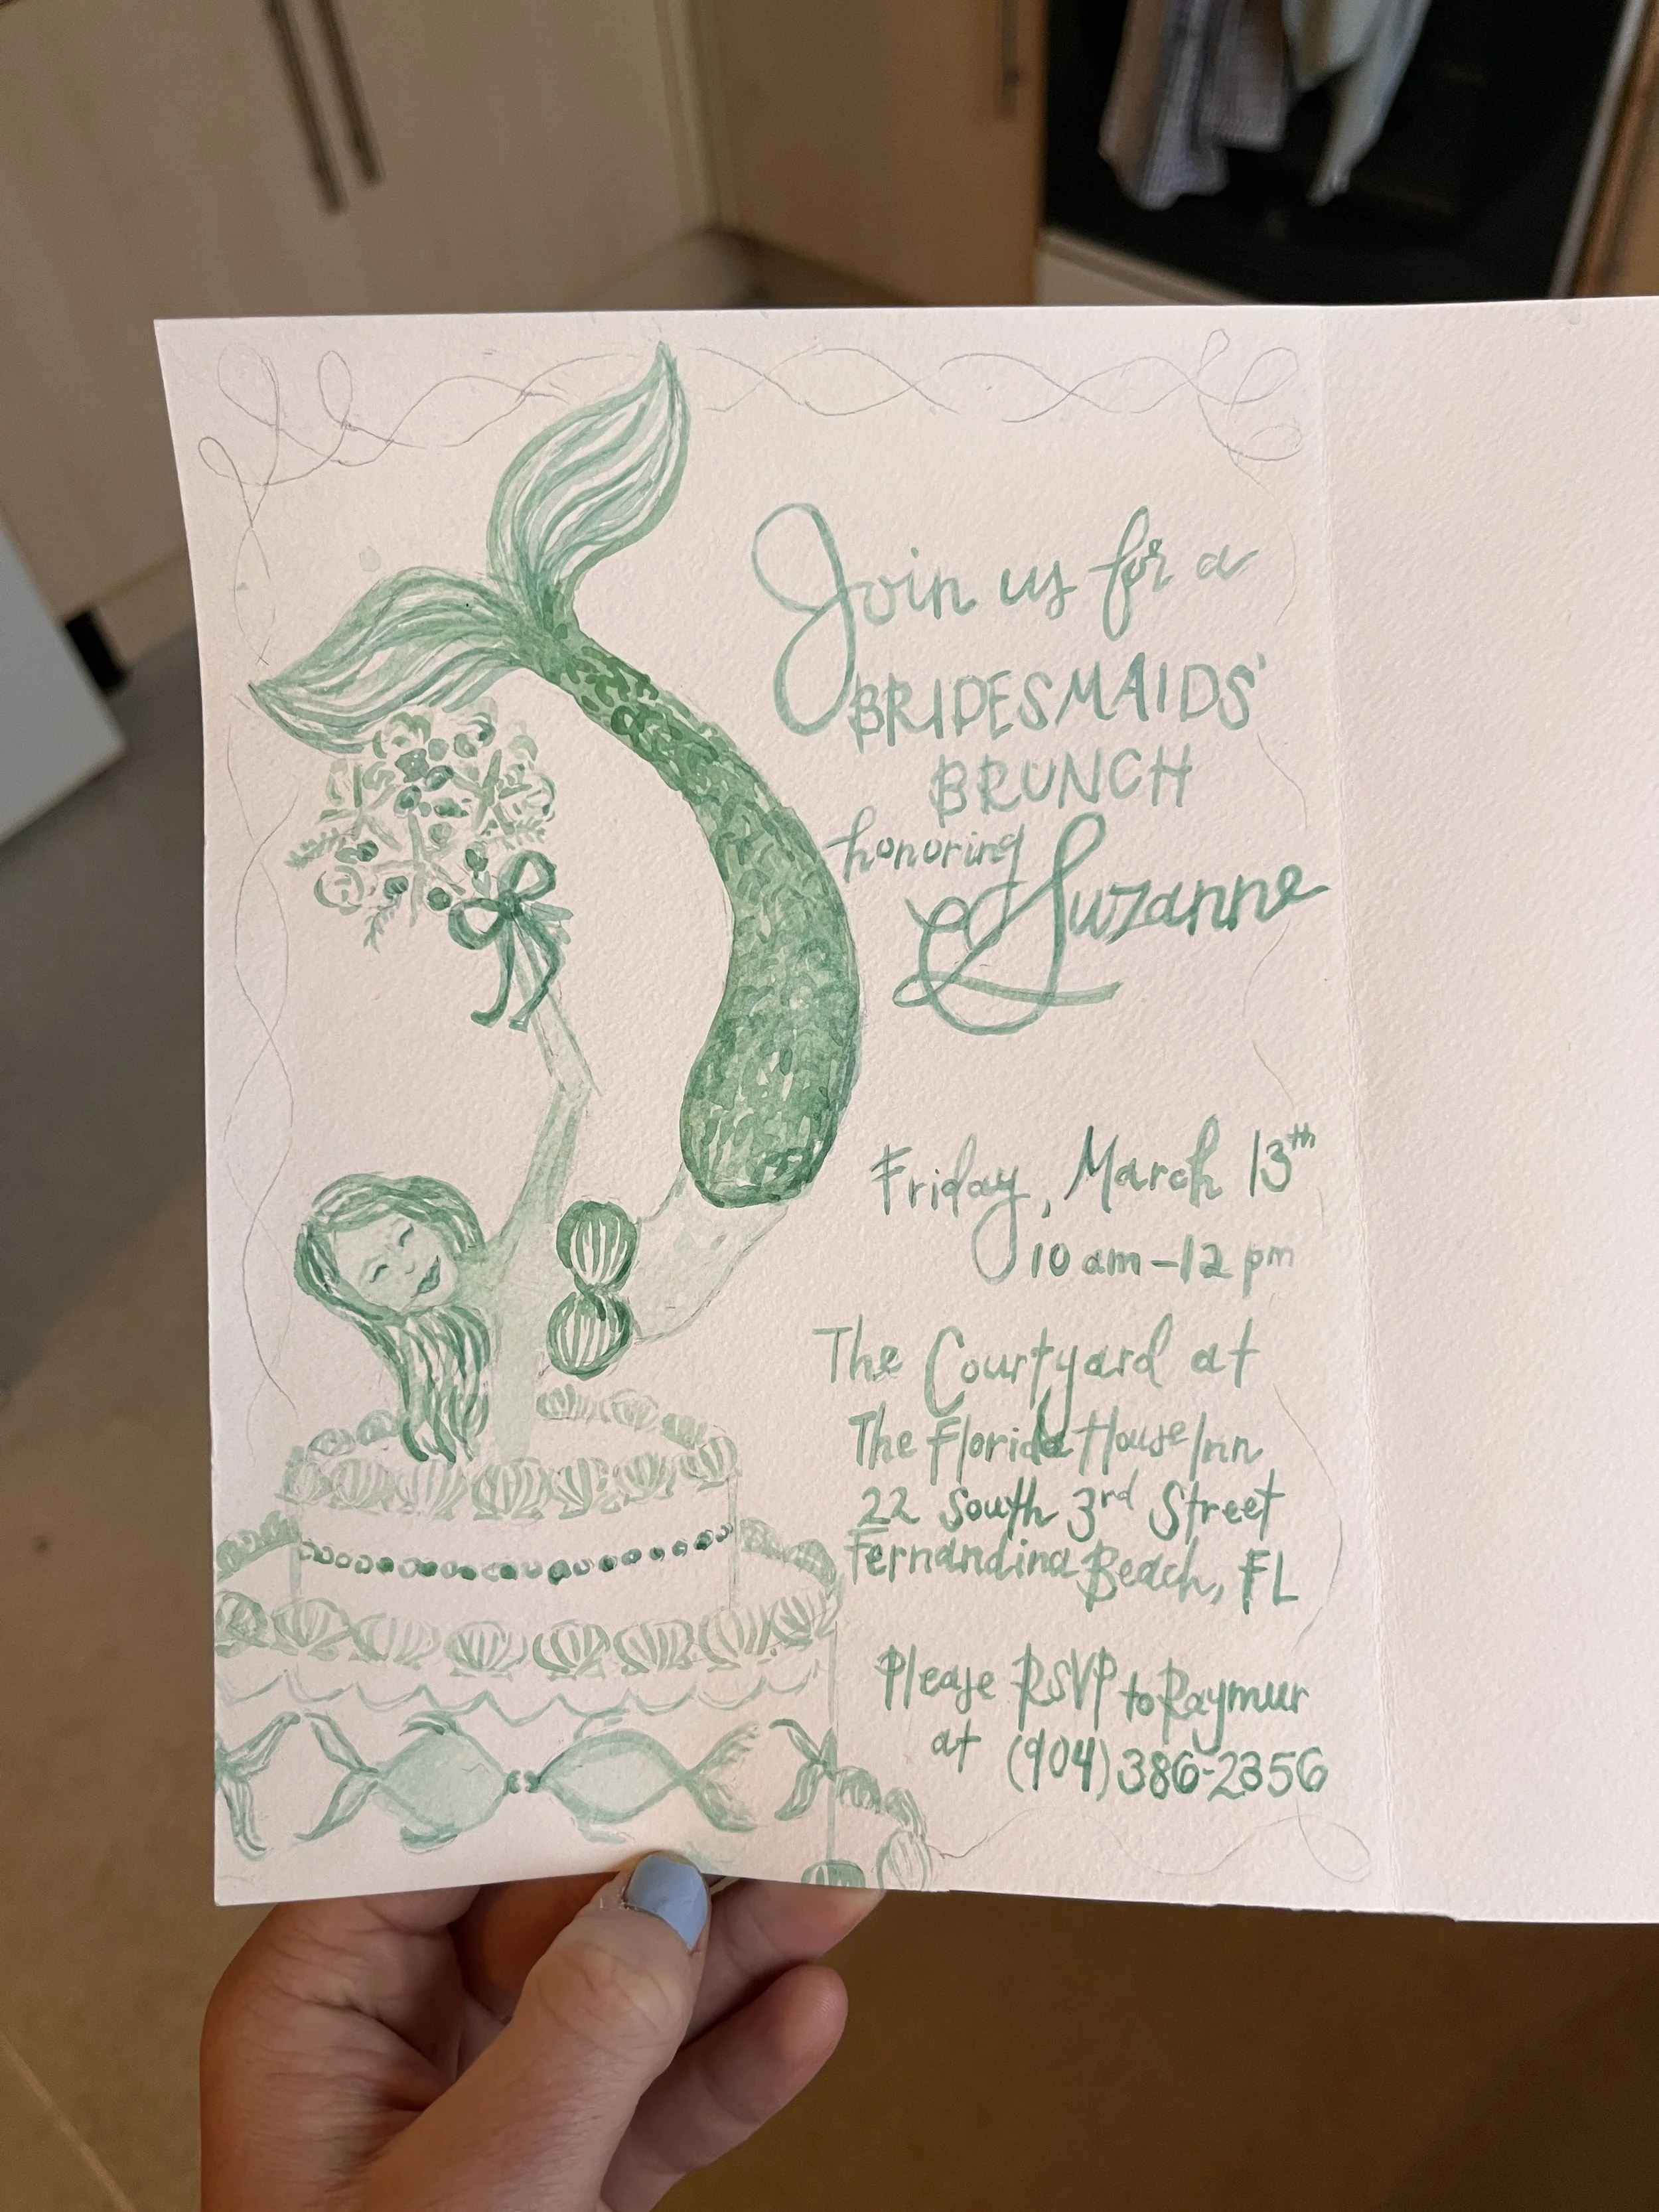 Join us for a
BRIDESMAIDS'
BRUNCH
honoring
Suzanne
Friday, March 13th
10 am - 12 pm
The Courtyard at
The Florida House Inn
22 South 3rd Street
Fernandina Beach, FL
Please RSVP to Raymur
at (904) 386-2356